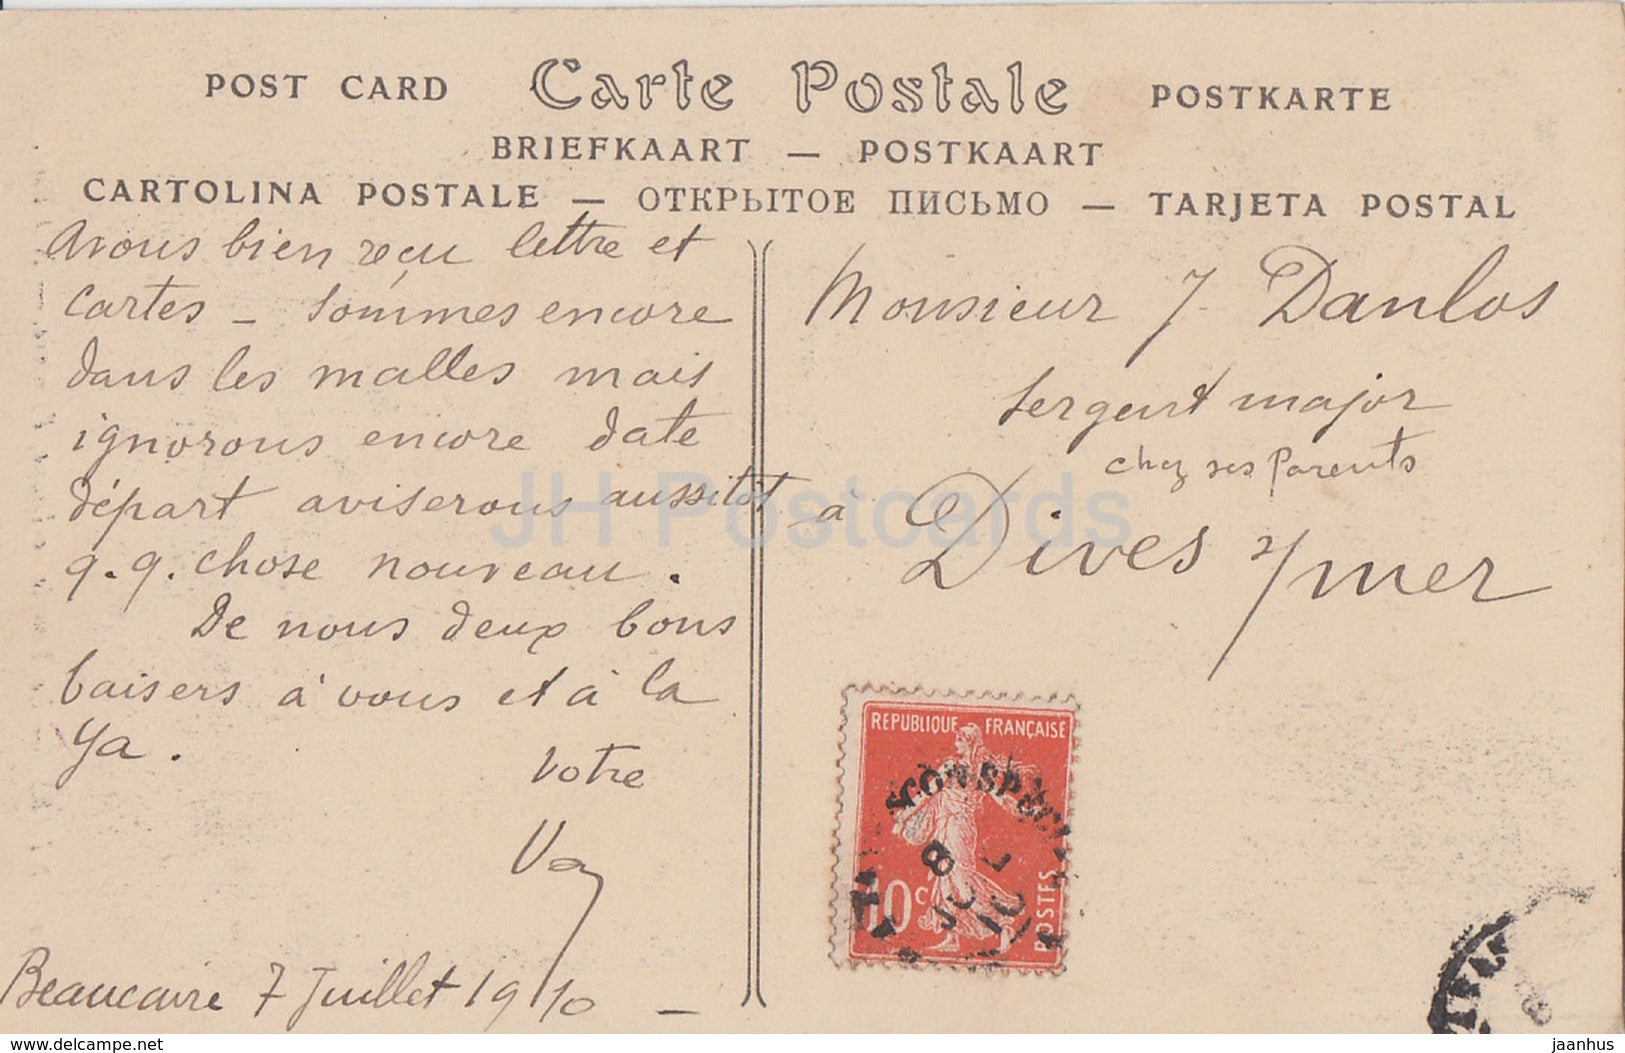 POST CARD Carte Postale POSTKARTE
BRIEFKAART — POSTKAART
CARTOLINA POSTALE — ОТКРЫТОЕ ПИСЬМО — TARJETA POSTAL
Avons bien reçu lettre et
cartes - Sommes encore
dans les malles mais
ignorons encore date
départ aviserons aussitôt
q.q. chose nouveau.
De nous deux bons
baisers à vous et à la
Ya.
Votre
Beaucaire 7 Juillet 1910 -
Monsieur J. Danlos
Sergent major
chez ses Parents
à Dives s/mer
REPUBLIQUE FRANÇAISE
10c
POSTES
8
JH Postcards
delcampe.net
jaanhus